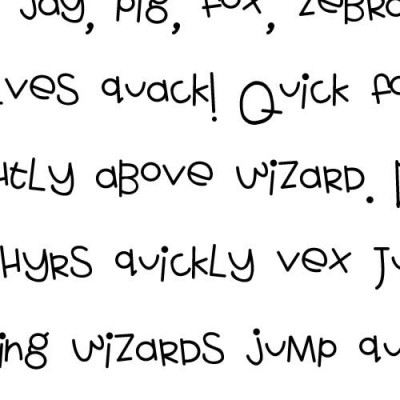 jay, pig, fox, zebra
lves quack! Quick fo
htly above wizard.
phyrs quickly vex Ju
ing wizards jump qu